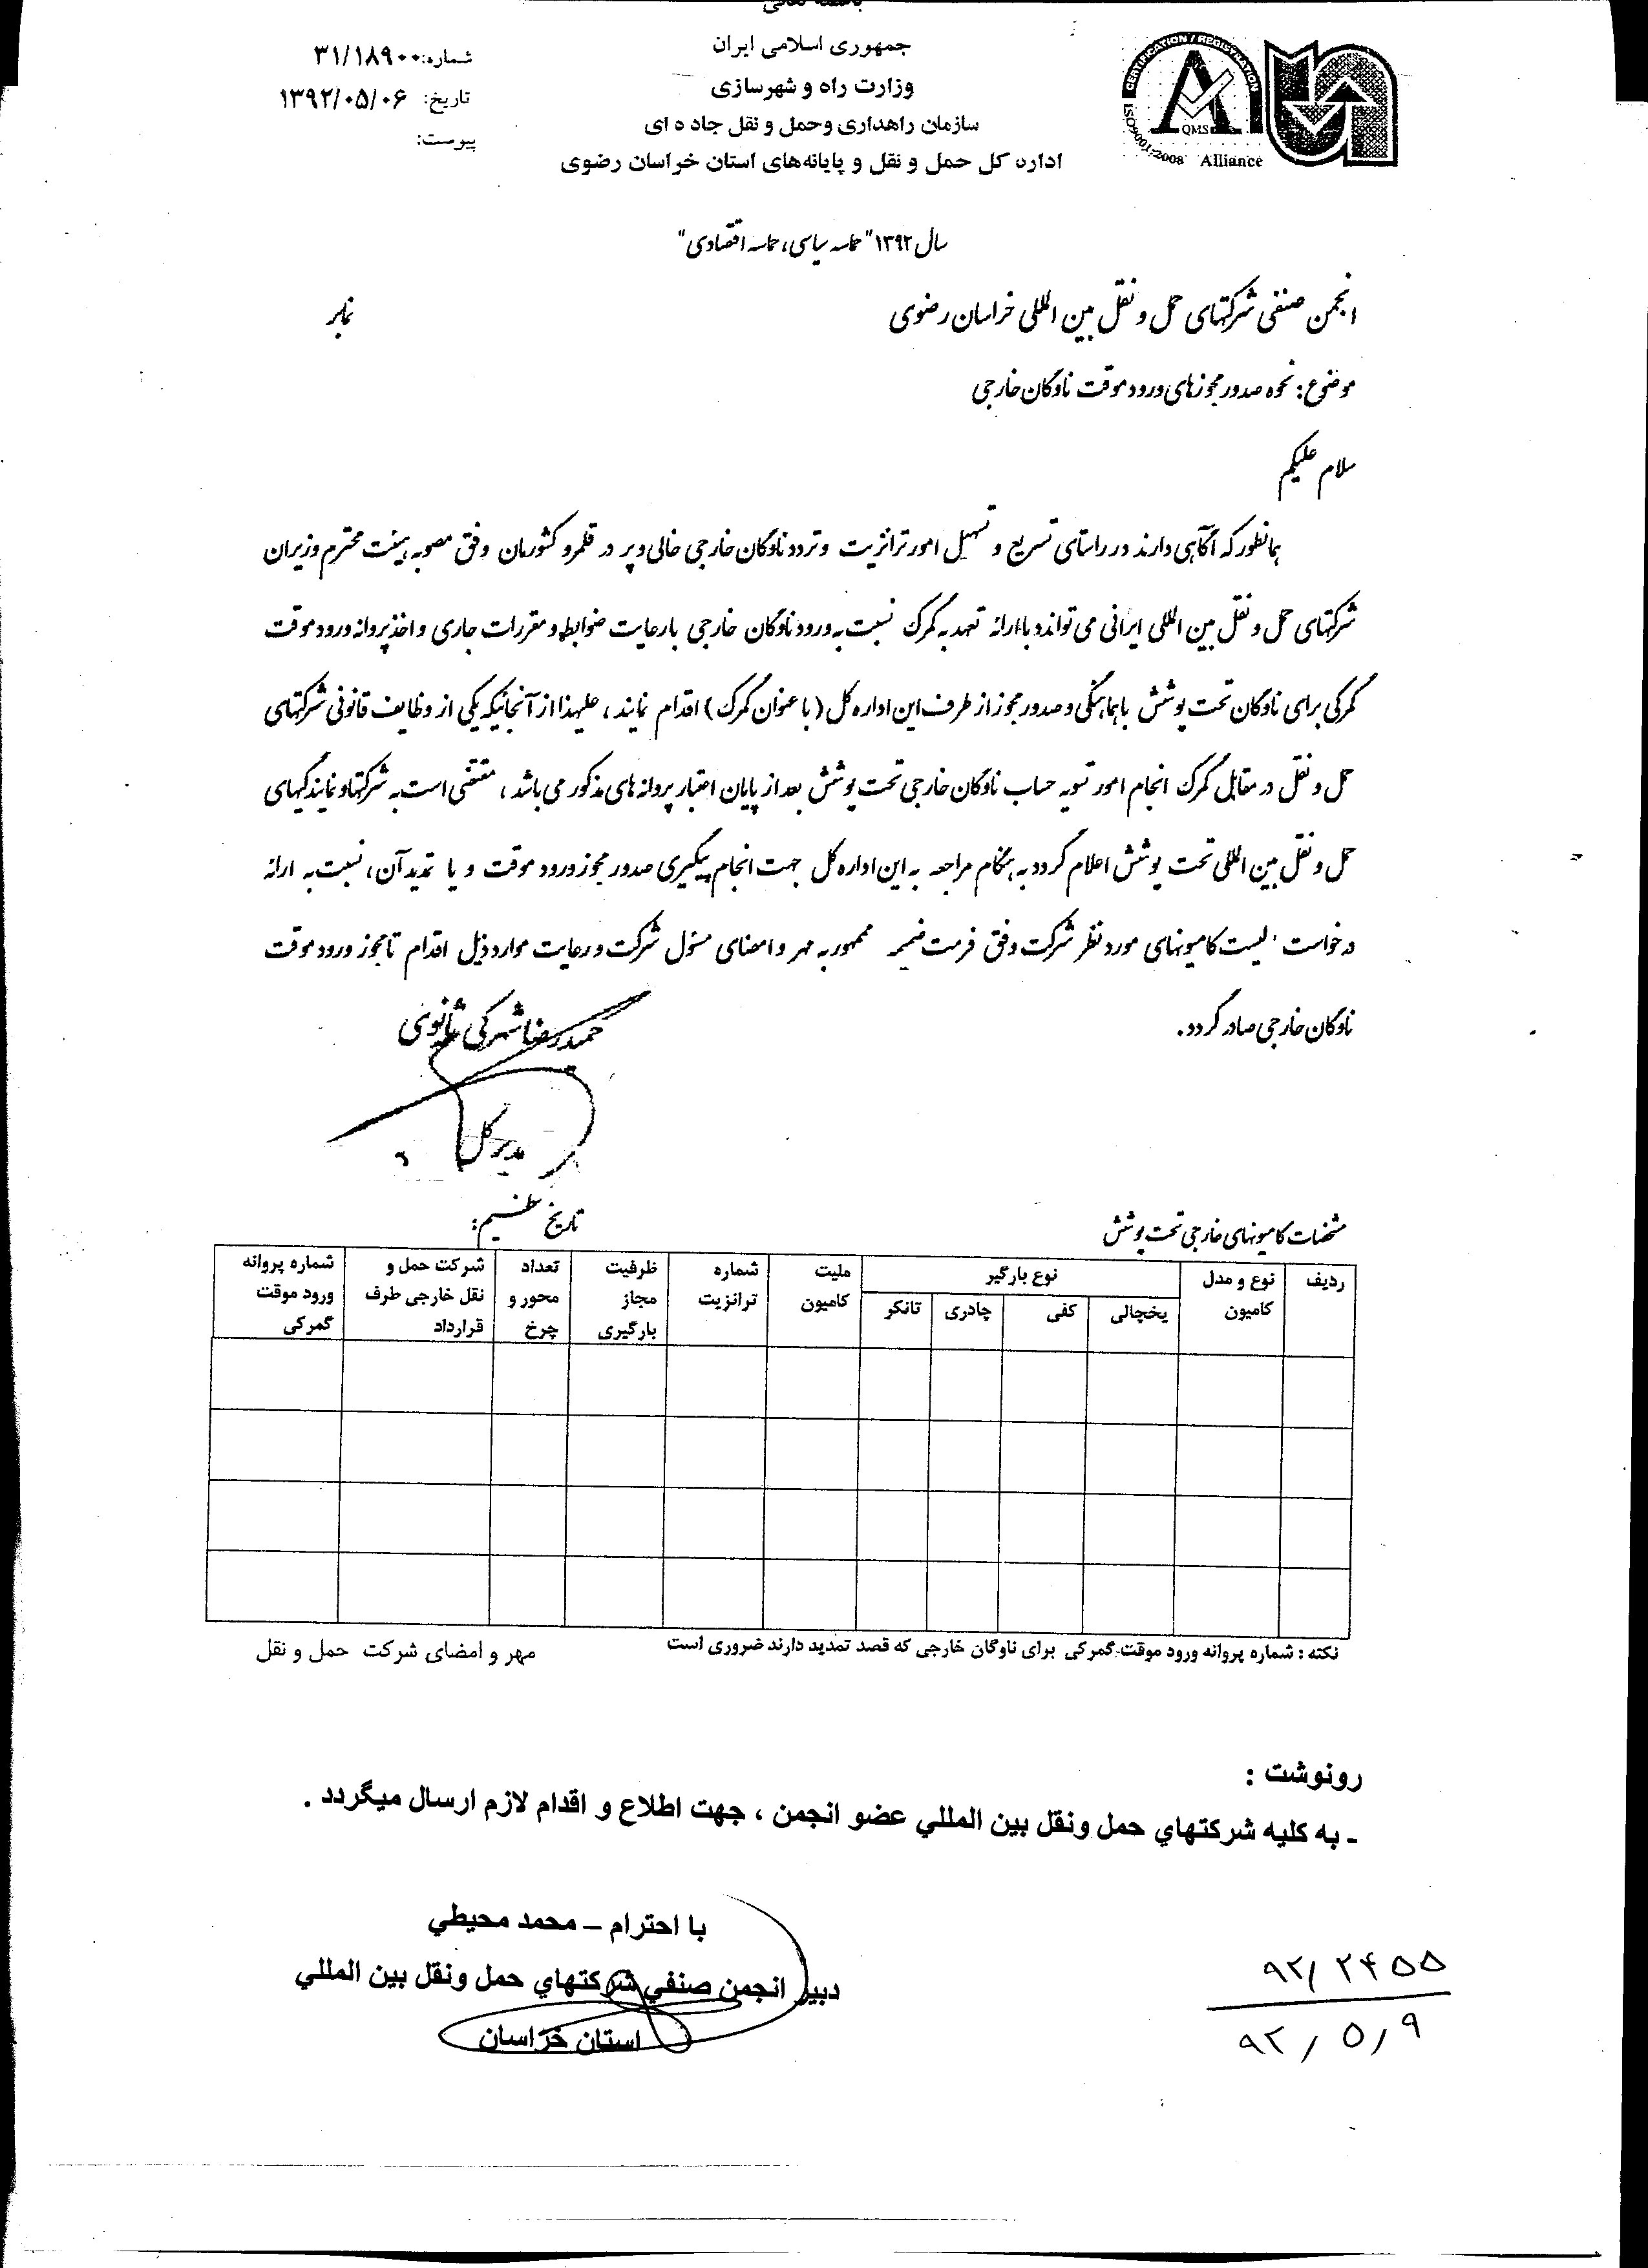 باسمه تعالی
جمهوری اسلامی ایران
وزارت راه و شهرسازی
سازمان راهداری وحمل و نقل جاده ای
اداره کل حمل و نقل و پایانه‌های استان خراسان رضوی
شماره: ۳۱/۱۸۹۰۰
تاریخ: ۱۳۹۲/۰۵/۰۶
پیوست:
CERTIFICATION / REGISTRATION
ISO9001:2008
QMS
Alliance
سال ۱۳۹۲ "حماسه سیاسی، حماسه اقتصادی"
انجمن صنفی شرکتهای حمل و نقل بین المللی خراسان رضوی
نمابر
موضوع: نحوه صدور مجوزهای ورود موقت ناوگان خارجی
سلام علیکم
همانطور که آگاهی دارند در راستای تسریع و تسهیل امور ترانزیت و تردد ناوگان خارجی خالی و پر در قلمرو کشورمان وفق مصوبه هیئت محترم وزیران
شرکتهای حمل و نقل بین المللی ایرانی می توانند با ارائه تعهد به گمرک نسبت به ورود ناوگان خارجی با رعایت ضوابط و مقررات جاری و اخذ پروانه ورود موقت
گمرکی برای ناوگان تحت پوشش با هماهنگی و صدور مجوز از طرف این اداره کل (با عنوان گمرک) اقدام نمایند، علیهذا از آنجائیکه یکی از وظایف قانونی شرکتهای
حمل و نقل در مقابل گمرک انجام امور تسویه حساب ناوگان خارجی تحت پوشش بعد از پایان اعتبار پروانه های مذکور می باشد، مقتضی است به شرکتها و نمایندگیهای
حمل و نقل بین المللی تحت پوشش اعلام گردد به هنگام مراجعه به این اداره کل جهت انجام پیگیری صدور مجوز ورود موقت و یا تمدید آن، نسبت به ارائه
درخواست لیست کامیونهای مورد نظر شرکت وفق فرمت ضمیمه ممهور به مهر و امضای مسئول شرکت و رعایت موارد ذیل اقدام تا مجوز ورود موقت
ناوگان خارجی صادر گردد.
حمیدرضا شهرکی ثانوی
مدیر کل
مشخصات کامیونهای خارجی تحت پوشش
تاریخ تنظیم:
ردیف
نوع و مدل کامیون
نوع بارگیر
یخچالی
کفی
چادری
تانکر
ملیت کامیون
شماره ترانزیت
ظرفیت مجاز بارگیری
تعداد محور و چرخ
شرکت حمل و نقل خارجی طرف قرارداد
شماره پروانه ورود موقت گمرکی
نکته : شماره پروانه ورود موقت گمرکی برای ناوگان خارجی که قصد تمدید دارند ضروری است
مهر و امضای شرکت حمل و نقل
رونوشت :
ـ به کلیه شرکتهاي حمل ونقل بین المللي عضو انجمن ، جهت اطلاع و اقدام لازم ارسال میگردد .
با احترام – محمد محیطي
دبیر انجمن صنفي شرکتهاي حمل ونقل بین المللي
استان خراسان
۹۲/ ۲۴۵۵
۹۲ / ۵ / ۹